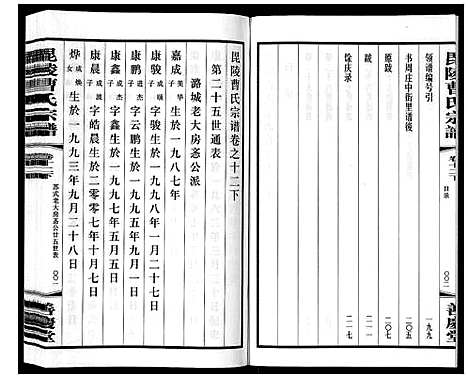 毘陵曹氏宗譜
卷十二下
目录
〇〇二
善慶堂
领谱编号引
一九九
书周庄中街里谱後
二〇五
原跋
二〇七
跋
二一一
馀庆录
二一七
毘陵曹氏宗谱卷之十二下
潞城老大房忞公派
第二十五世通表
嘉成 美华子 生於一九八七年
康骏 成顺子 字骏生於一九九八年一月二十七日
康鹏 成杰子 字云鹏生於一九九五年九月一日
康鑫 成杰子 字鑫生於一九九七年五月五日
康晨 成波子 字皓晨生於二〇〇七年十月七日
烨 成焕女 生於一九九三年九月二十八日
毘陵曹氏宗譜
卷十二下
老大房忞公廿五世表
〇〇一
善慶堂